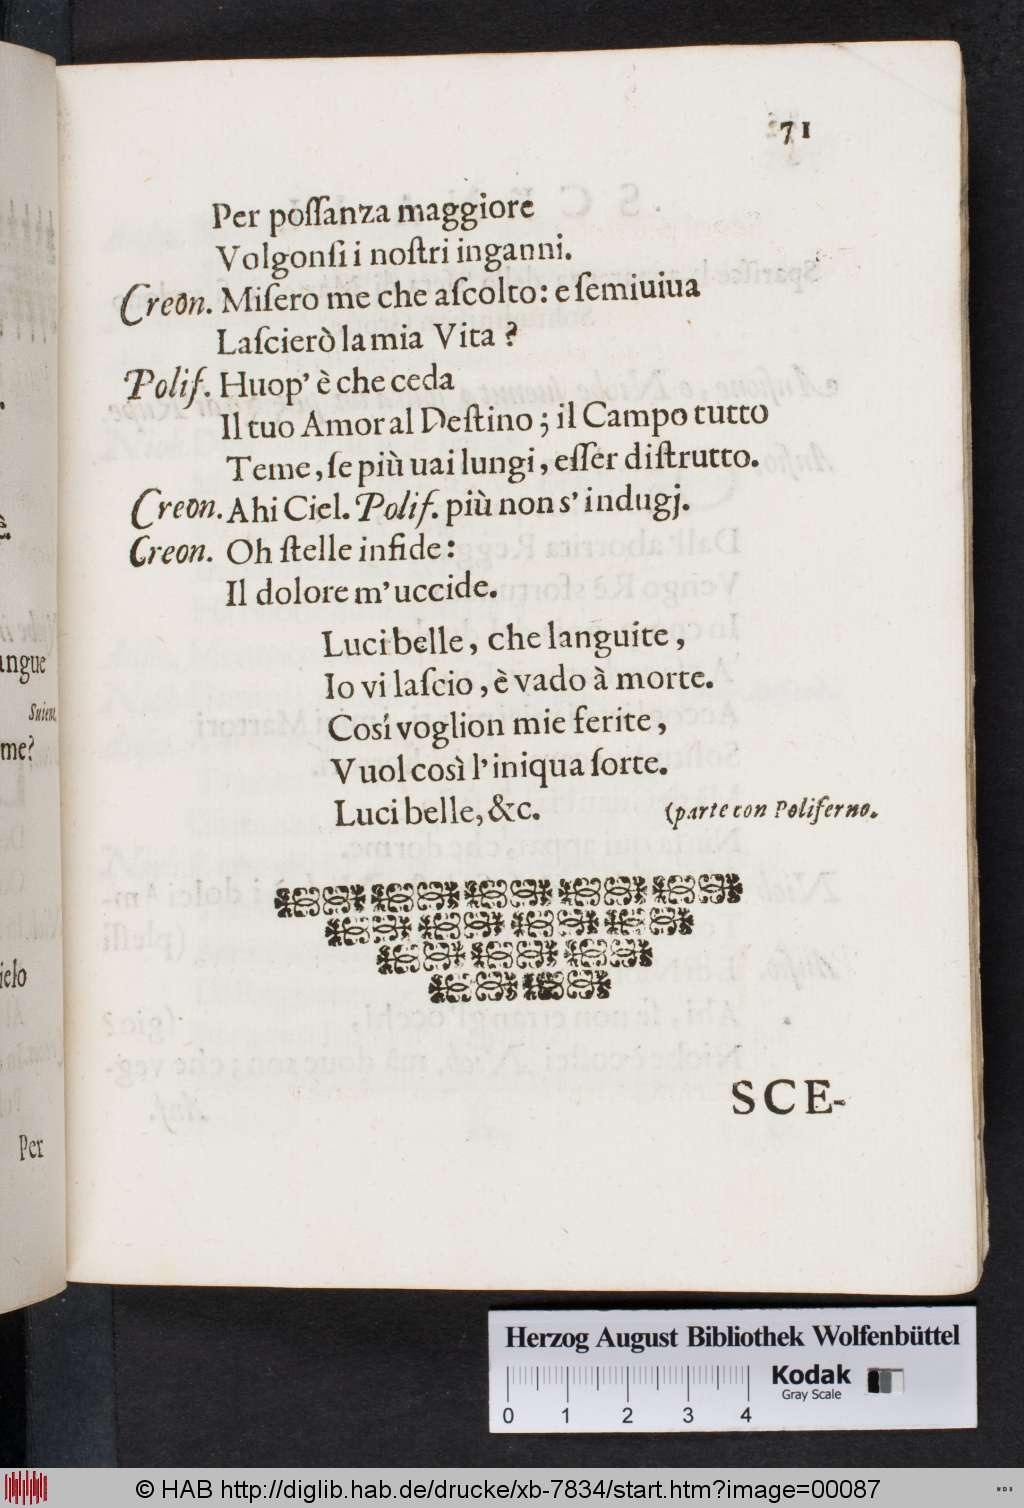 71
Per poſſanza maggiore
Volgonſi i noſtri inganni.
Creon. Miſero me che aſcolto: e ſemiuiua
Laſcierò la mia Vita?
Polif. Huop' è che ceda
Il tuo Amor al Deſtino; il Campo tutto
Teme, ſe più uai lungi, eſſer diſtrutto.
Creon. Ahi Ciel. Polif. più non s' indugj.
Creon. Oh ſtelle infide:
Il dolore m'uccide.
Luci belle, che languite,
Io vi laſcio, è vado à morte.
Così voglion mie ferite,
Vuol così l'iniqua ſorte.
Luci belle, &c. (parte con Poliferno.
SCE-
angue
Suien.
me?
ielo
Per
Herzog August Bibliothek Wolfenbüttel
Kodak
Gray Scale
0 1 2 3 4
© HAB http://diglib.hab.de/drucke/xb-7834/start.htm?image=00087